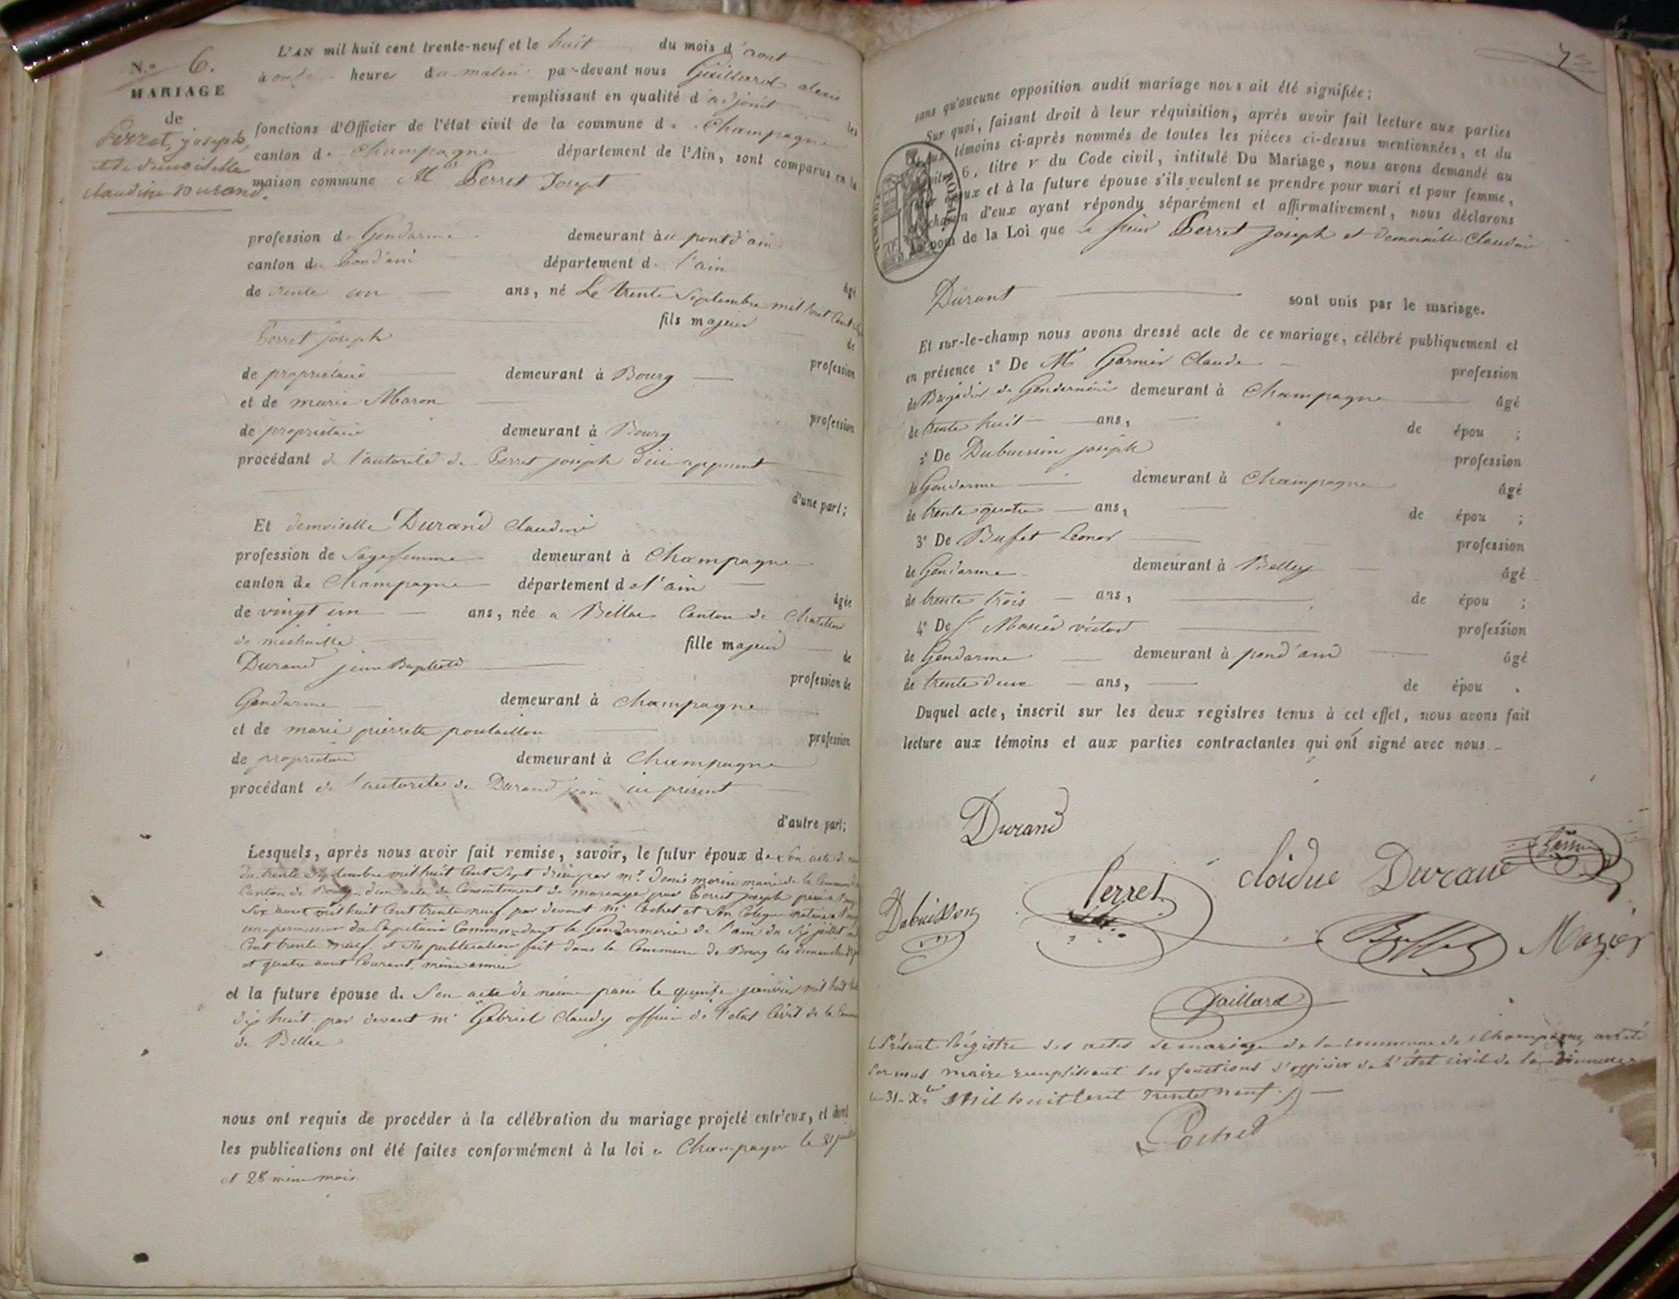 N.º 6.
MARIAGE
de
Perret, joseph,
et de demoiselle
claudine Durand.
L'AN mil huit cent trente-neuf et le huit du mois d'aout
à onze heures du matin par-devant nous Gaillard alexis
remplissant en qualité d'adjoint les
fonctions d'Officier de l'état civil de la commune de Champagne
canton de Champagne département de l'Ain, sont comparus en la
maison commune Perret Joseph
profession de Gendarme demeurant au pont d'ain
canton de pond'ain département de l'ain
âgé
de trente un ans, né Le trente Septembre mil huit Cent
fils majeur
de
Perret joseph
profession
de propriétaire demeurant à Bourg
et de marie Maron
profession
de propriétaire demeurant à Bourg
procédant de l'autorité de Perret joseph
d'une part;
Et demoiselle Durand claudine
profession de Sagefemme demeurant à Champagne
canton de Champagne département de l'ain
âgée
de vingt un ans, née a Billac Canton de Chatillon
de michaille fille majeur
de
Durand jean Baptiste
profession de
Gendarme demeurant à Champagne
et de marie pierrette
profession
de propriétaire demeurant à Champagne
procédant de l'autorité de Durand jean ici présent
d'autre part;
Lesquels, après nous avoir fait remise, savoir, le futur époux de Son acte de
du trente Septembre mil huit Cent Sept par mr. Denis morin maire de la Commune
Canton de Bourg, d'un acte de Consentement de mariage par Perret Joseph
Six aout mil huit Cent trente neuf par devant Mr Cochet et Son Colegue notaire
une permission du Capitaine Commandant la Gendarmerie de l'ain du juillet
Cent trente neuf et Ses publication fait dans la Commune de Bourg les dimanche
et quatre aout Courant, même année
et la future épouse de Son acte de naissance passé le quinze janvier mil huit
dix huit par devant mr Gabriel Claudy officier de l'etat Civil de la Commune
de Billac
nous ont requis de procéder à la célébration du mariage projeté entr'eux, et dont
les publications ont été faites conformément à la loi a Champagne le 21 juillet
et 28 même mois
sans qu'aucune opposition audit mariage nous ait été signifiée;
Sur quoi, faisant droit à leur réquisition, après avoir fait lecture aux parties
témoins ci-après nommés de toutes les pièces ci-dessus mentionnées, et du
6, titre V du Code civil, intitulé Du Mariage, nous avons demandé au
et à la future épouse s'ils veulent se prendre pour mari et pour femme,
chacun d'eux ayant répondu séparément et affirmativement, nous déclarons
au nom de la Loi que le sieur Perret joseph et demoiselle Claudine
TIMBRE ROYAL
Durant sont unis par le mariage.
Et sur-le-champ nous avons dressé acte de ce mariage, célébré publiquement et
en présence 1º De Mr Garnier Claude
profession
de Brigadier de Gendarmerie demeurant à Champagne
âgé
de trente huit ans, de épou ;
2º De Dubuisson joseph
profession
de Gendarme demeurant à Champagne
âgé
de trente quatre ans, de épou ;
3º De Bufet Leonor
profession
de Gendarme demeurant à Belley
âgé
de trente trois ans, de épou ;
4º De Sr Mosier victor
profession
de Gendarme demeurant à pond'ain
âgé
de trente deux ans, de épou .
Duquel acte, inscrit sur les deux registres tenus à cet effet, nous avons fait
lecture aux témoins et aux parties contractantes qui ont signé avec nous
Durand
cloidue Durand
Dubuisson
Perret
Buffet
Mozier
Gaillard
Le Présent Régistre des actes de mariage de la commune de Champagne arrété
Par nous maire remplissant les fonctions d'officier de l'état civil de la commune
le 31 Xbre Mil huit Cent Trente neuf
Cochet